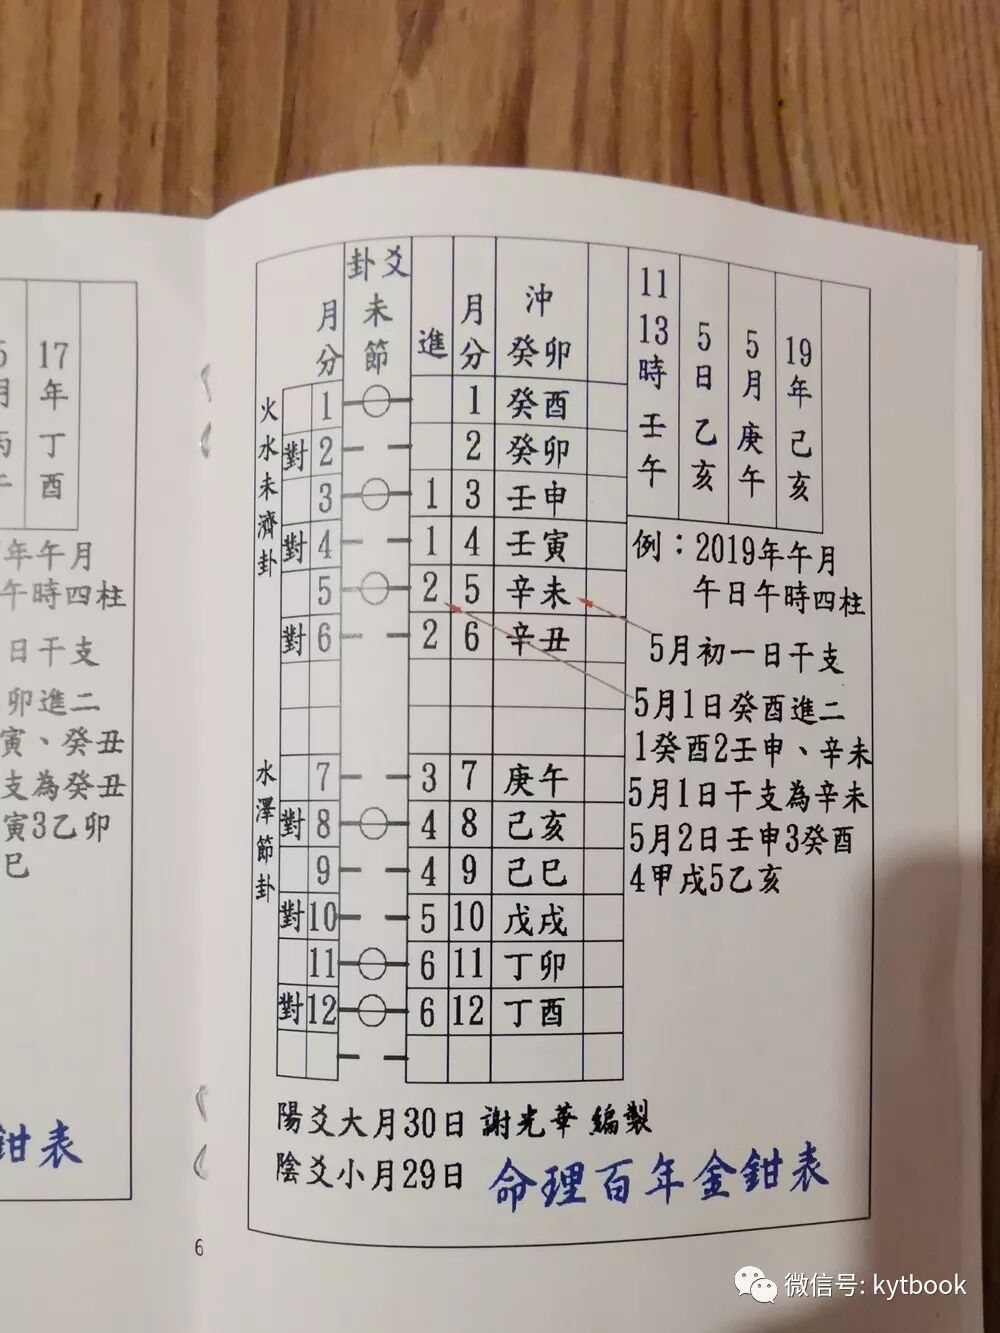 17年丁酉
年午月
午時四柱
日干支
卯進二
寅、癸丑
支為癸丑
寅3乙卯
巳
鉗表
卦爻未節
月分
進
月分
沖癸卯
11 13時壬午
5日乙亥
5月庚午
19年己亥
火水未濟卦
1 1 癸酉
對 2 2 癸卯
3 1 3 壬申
對 4 1 4 壬寅
5 2 5 辛未
對 6 2 6 辛丑
水澤節卦
7 3 7 庚午
對 8 4 8 己亥
9 4 9 己巳
對 10 5 10 戊戌
11 6 11 丁卯
對 12 6 12 丁酉
例：2019年午月
午日午時四柱
5月初一日干支
5月1日癸酉進二
1癸酉2壬申、辛未
5月1日干支為辛未
5月2日壬申3癸酉
4甲戌5乙亥
陽爻大月30日 謝光華 編製
陰爻小月29日 命理百年金鉗表
6
微信号: kytbook